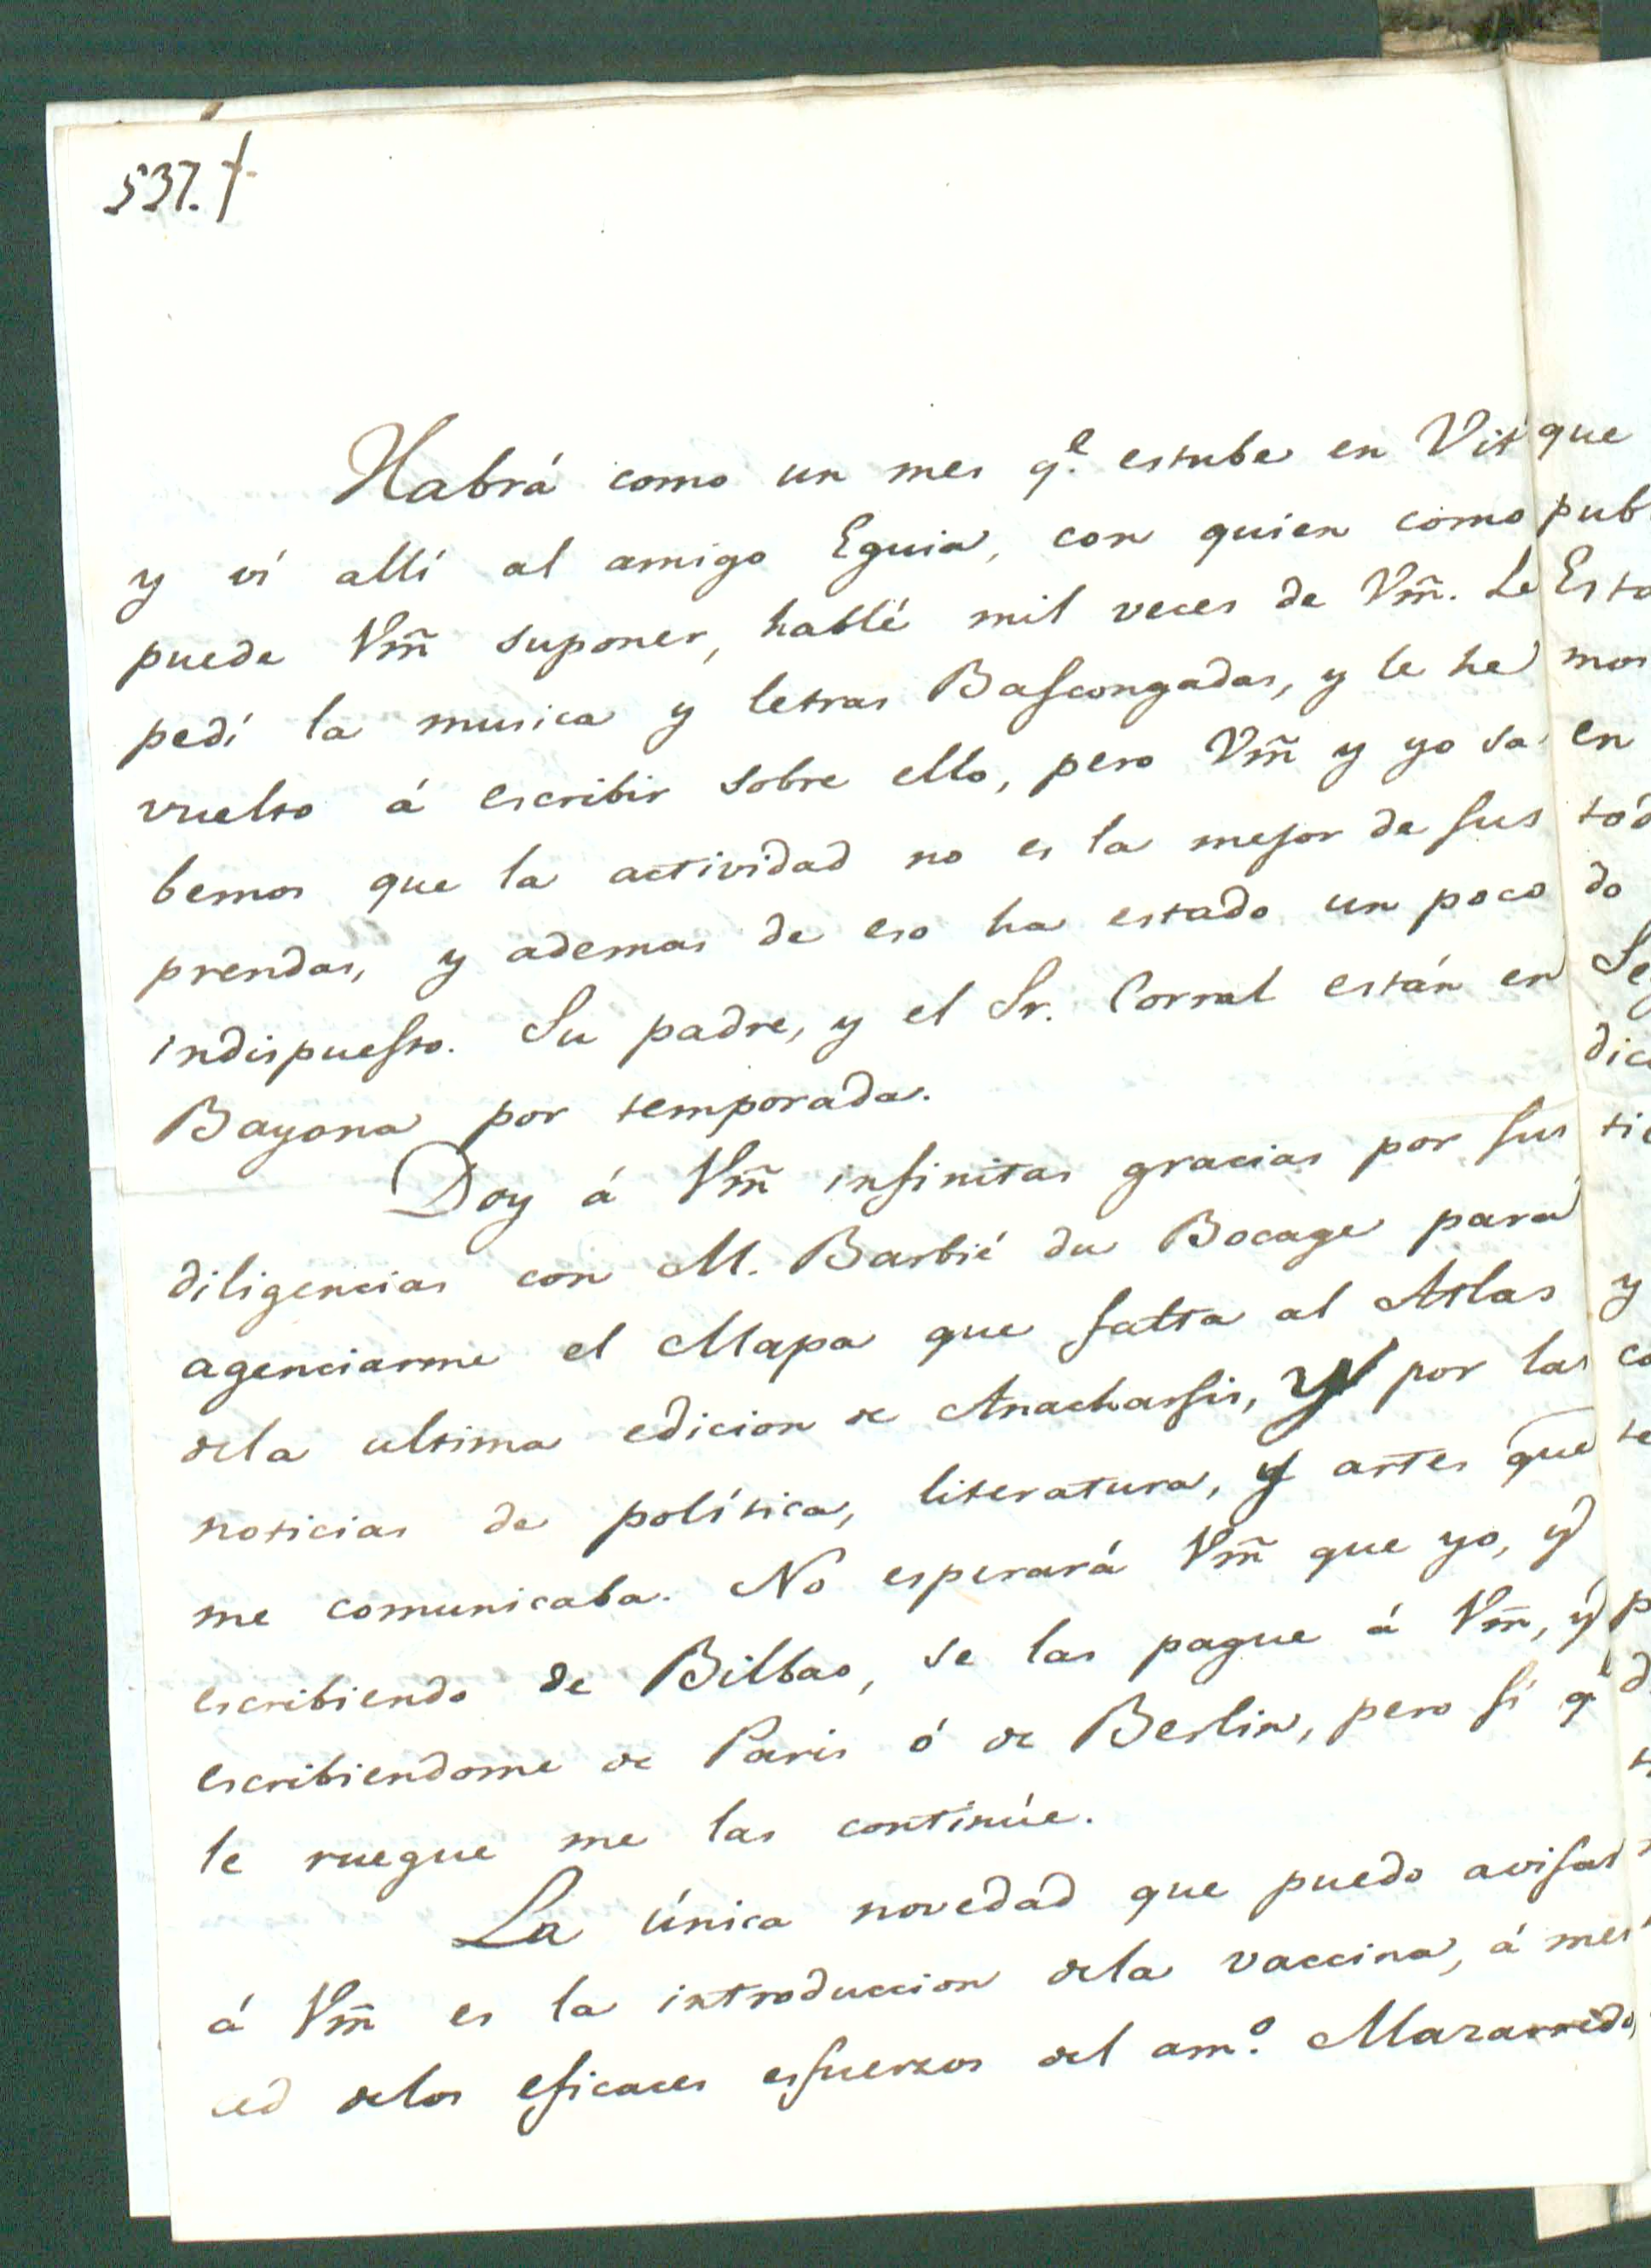 537. †
Habrá como un mes q.e estube en Vit
y ví allí al amigo Eguia, con quien como
puede Vm̃ suponer, hablé mil veces de Vm̃. Le
pedí la musica y letras Bascongadas, y le he
vuelto á escribir sobre ello, pero Vm̃ y yo sa
bemos que la actividad no es la mejor de sus
prendas, y ademas de eso ha estado un poco
indispuesto. Su padre, y el Sr. Corral están en
Bayona por temporada.
Doy á Vm̃ infinitas gracias por sus
diligencias con M. Barbié du Bocage para
agenciarme el Mapa que falta al Atlas
dela ultima edicion de Anacharsis, y por las
noticias de política, literatura, y artes que
me comunicaba. No esperará Vm̃ que yo, y
escribiendo de Bilbao, se las pague á Vm̃, y
escribiendome de Paris ó de Berlin, pero sí q.e
le ruegue me las continúe.
La única novedad que puedo avisar
á Vm̃ es la introduccion dela vaccina, á mer
ced delos eficaces esfuerzos del am.o Mazarredo,
que
pub
Esta
mos
en
tod
do
Se
dic
tie
y
co
te
p
d